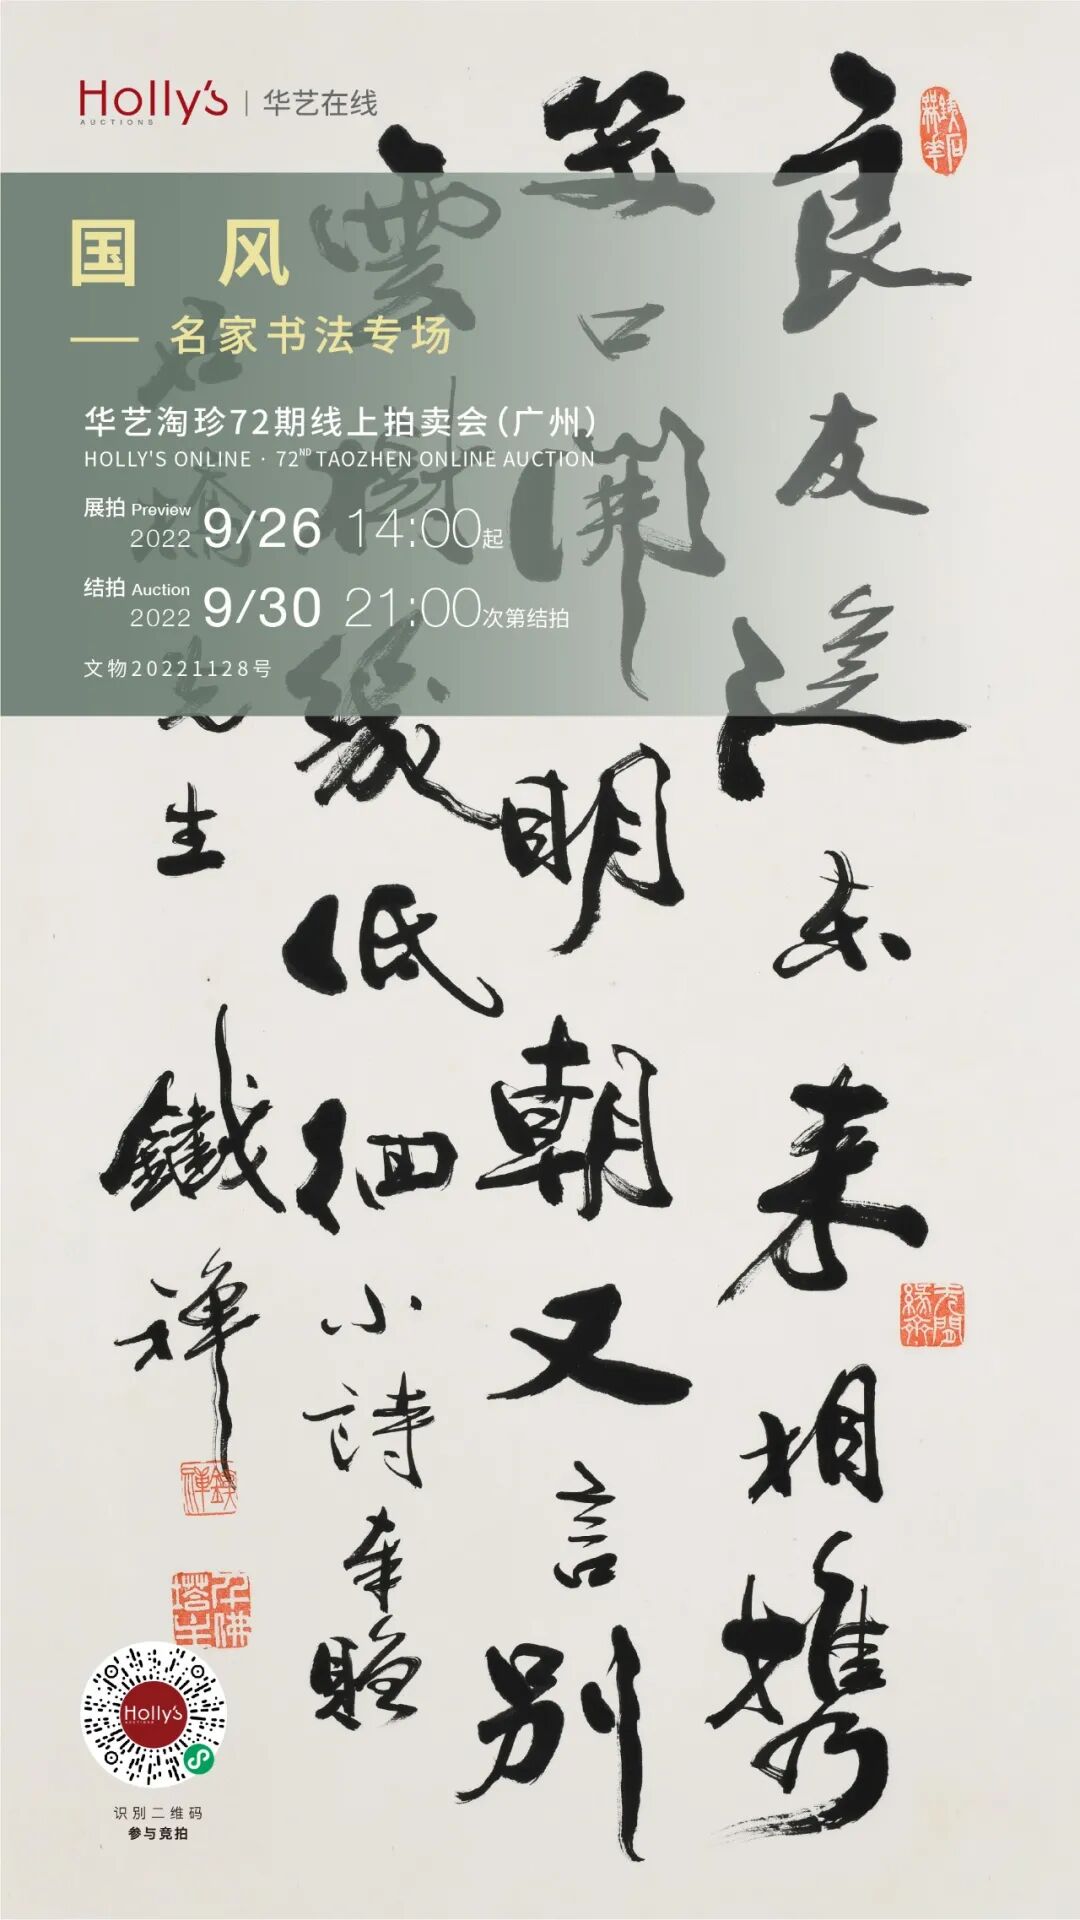 Holly's | 华艺在线
AUCTIONS
国 风
—— 名家书法专场
华艺淘珍72期线上拍卖会（广州）
HOLLY'S ONLINE · 72ND TAOZHEN ONLINE AUCTION
展拍 Preview 2022 9/26 14:00起
结拍 Auction 2022 9/30 21:00次第结拍
文物20221128号
良友东来相携
笑口開明朝又言别
雲樹幾低徊小詩奉贈
先生鐵禪
鐵禪
千佛塔主
Holly's
AUCTIONS
识别二维码
参与竞拍